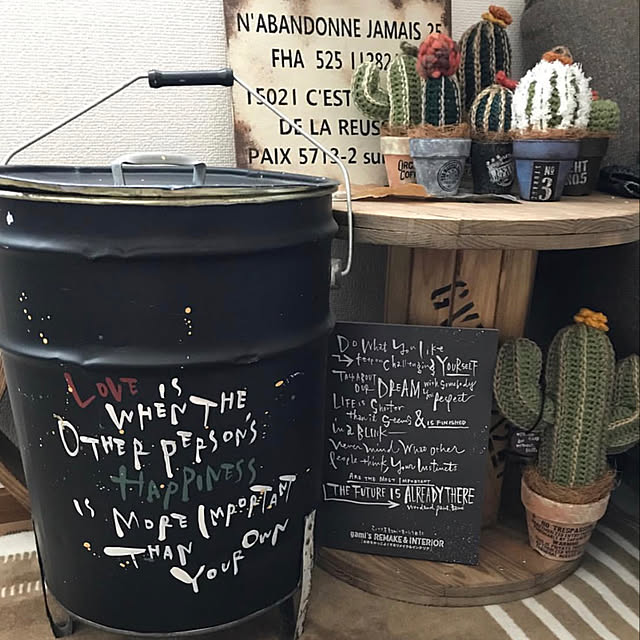 N'ABANDONNE JAMAIS 25
FHA 525 11282
15021 C'EST
DE LA REUS
PAIX 5713-2 su
ORG
COF
Nº
3
HT
LOVE IS
WHEN THE
OTHER PERSON'S
HAPPINESS
IS MORE IMPORTANT
THAN
YOUR OWN
Do What You like
keep on Challenging YOURSELF
TALK ABOUT
OUR DREAM with somebody
You perfect
LIFE is Shorter
than it seems & IS FINISHED
in a Blink
never mind What other
people think Your Instincts
ARE THE MOST IMPORTANT
THE FUTURE IS ALREADY THERE
gami's REMAKE & INTERIOR
NO TRESPASSING